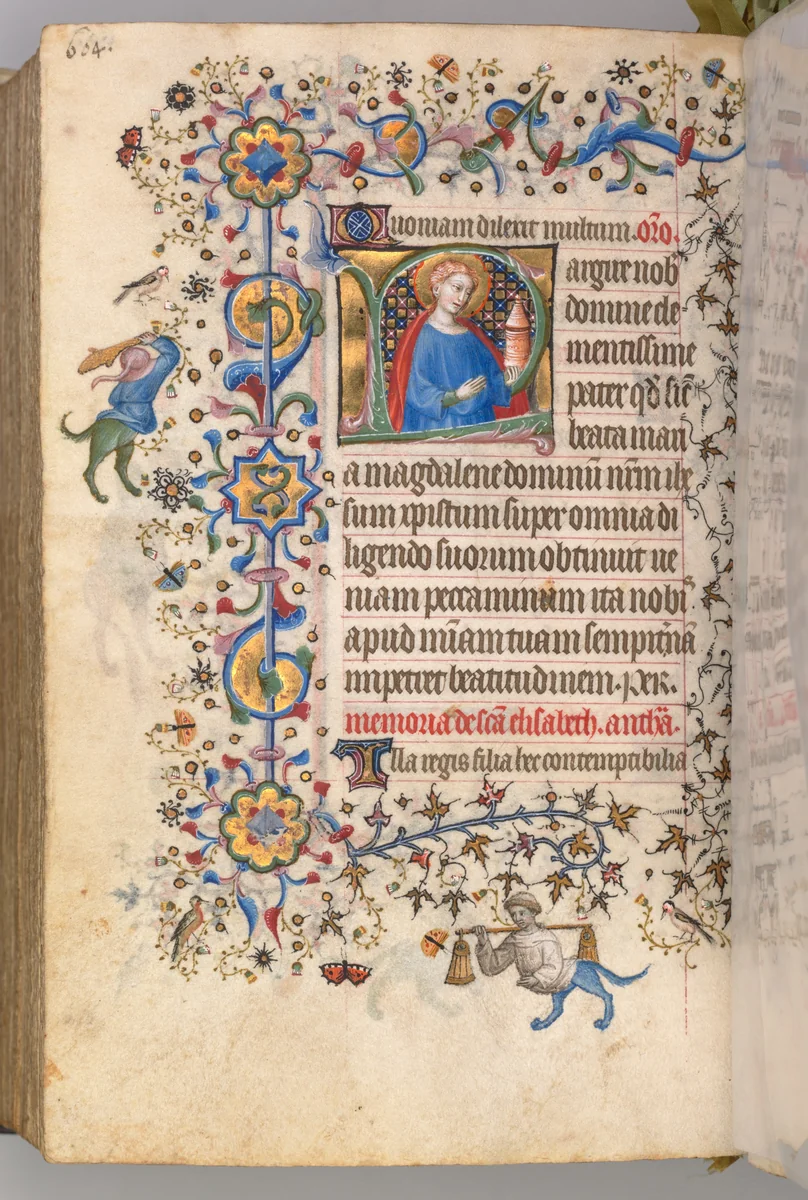 604.
Quoniam dilexit multum. or̄o.
Largire nob̄
domine cle
mentissime
pater qd̄ sic̄
beata mari
a magdalene dominū nr̄m ihe
sum xpistum super omnia di
ligendo suorum obtinuit ue
niam peccaminum ita nobis
apud mīam tuam sempit̄nā
impetret beatitudinem. Per.
memoria de sc̄a elisabeth. anth̄a.
Illa regis filia hec contemptibilia